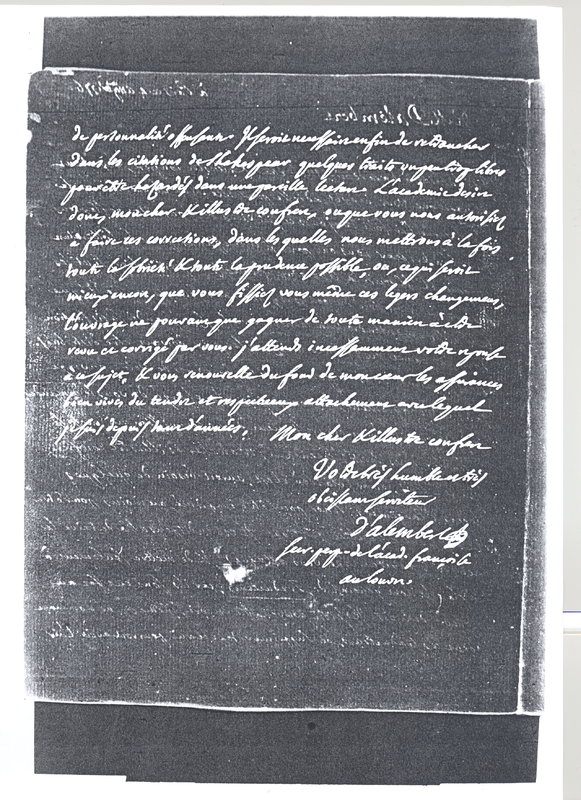 de personnalité offensante. Il seroit necessaire enfin de retrancher
dans les citations de Shakespear quelques traits un peu trop libres
pour être hazardés dans une pareille lecture. L'academie desire
donc, mon cher & illustre confrere, ou que vous nous autorisiez
à faire ces corrections, dans les quelles nous mettrons à la fois
toute la sobrieté & toute la prudence possible, ou, ce qui seroit
mieux encore, que vous fissiez vous même ces legers changemens,
l'ouvrage ne pouvant que gagner de toute maniere à être
revu et corrigé par vous. j'attends incessamment votre reponse
à ce sujet, & vous renouvelle du fond de mon coeur les assurances
bien vives du tendre et respectueux attachement avec lequel
je suis depuis tant d'années,
Mon cher & illustre confrere
Votre très humble et très
obeissant serviteur
D'alembert
secr. perp. de l'acad. françoise
au louvre